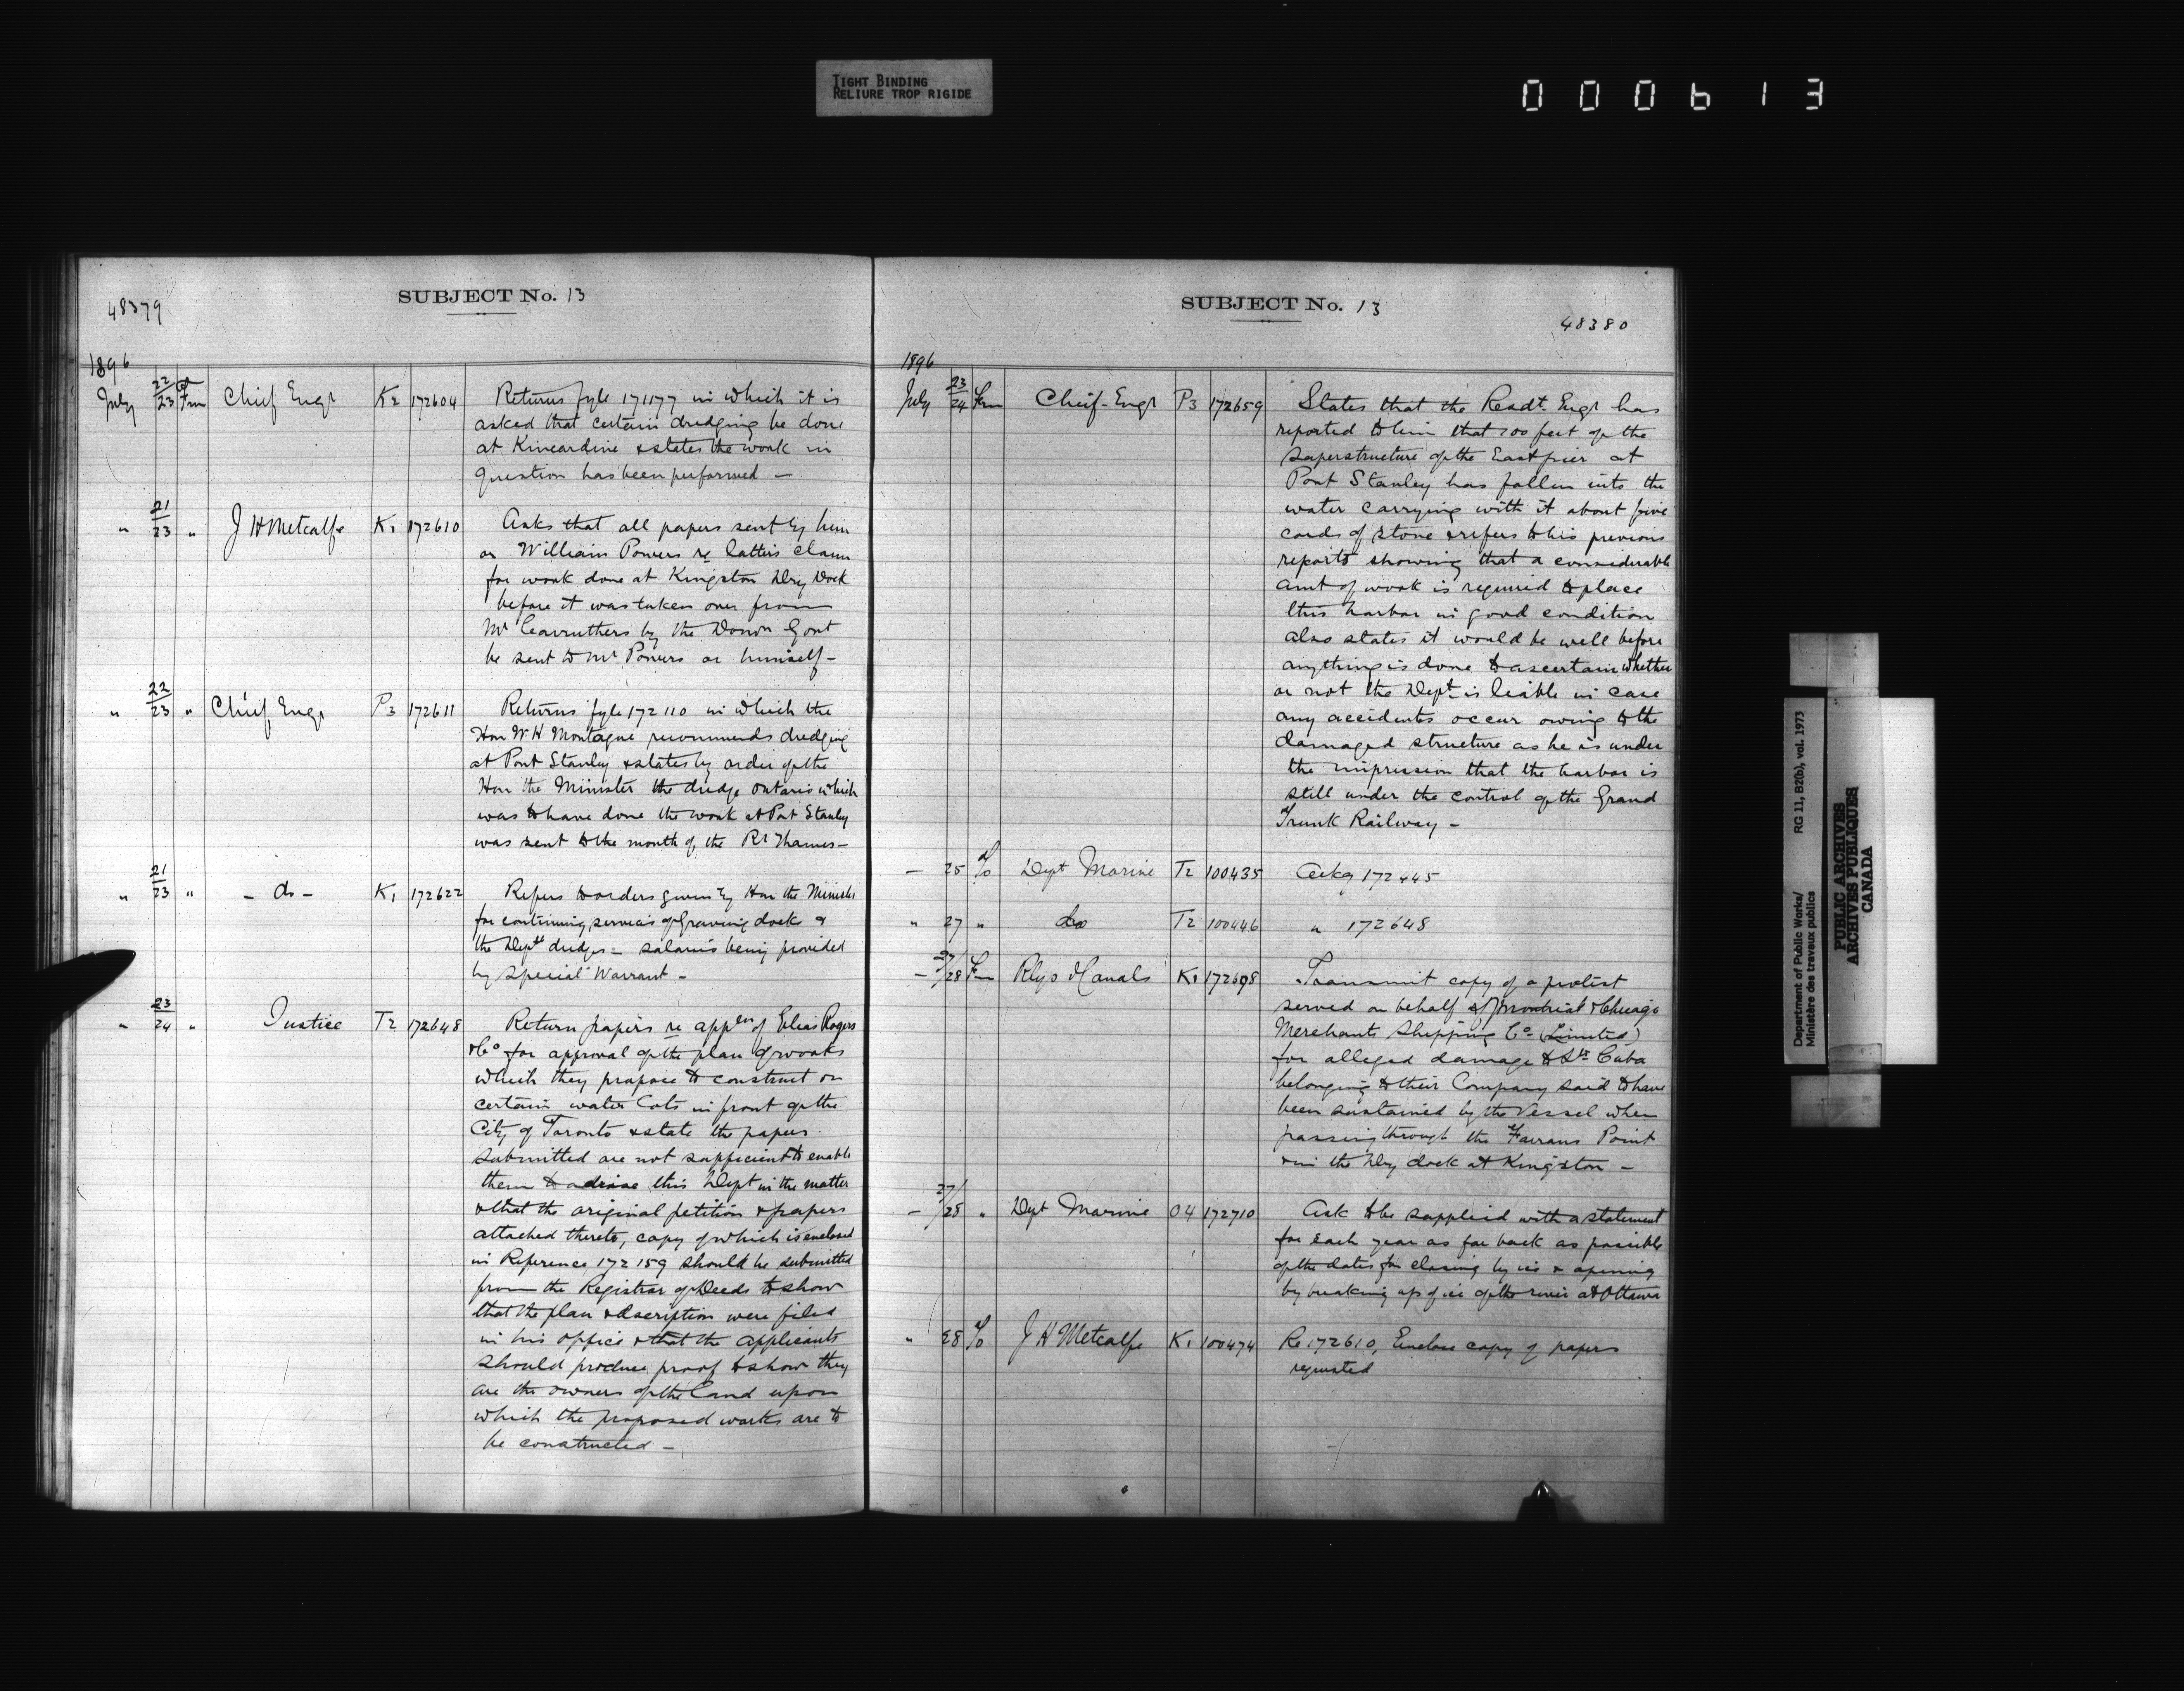 TIGHT BINDING
RELIURE TROP RIGIDE
000613
48379
SUBJECT No. 13
1896
July 22/23 Frm Chief Engr K2 172604 Returns fyle 171177 in which it is
asked that certain dredging be done
at Kincardine & states the work in
question has been performed —
" 21/23 " J H Metcalfe K1 172610 Asks that all papers sent by him
or William Powers re latter's claim
for work done at Kingston Dry Dock
before it was taken over from
Mr Carruthers by the Domn Govt
be sent to Mr Powers or himself —
" 22/23 " Chief Engr P3 172611 Returns fyle 172110 in which the
Hon W. H Montague recommends dredging
at Port Stanley & states by order of the
Hon the Minister the dredge Ontario which
was to have done the work at Port Stanley
was sent to the mouth of the Rr Thames —
" 21/23 " - do - K1 172622 Refers to orders given by Hon the Minister
for continuing services of Graving dock &
the Deptl dredges = salaries being provided
by Special Warrant —
" 23/24 " Justice T2 172648 Return papers re appln of Elias Rogers
& Co for approval of the plan of works
which they propose to construct on
certain water lots in front of the
City of Toronto & state the papers
submitted are not sufficient to enable
them to advise this Dept in the matter
& that the original petition & papers
attached thereto, copy of which is enclosed
in Reference 172159 should be submitted
from the Registrar of Deeds to show
that the plan & description were filed
in his office & that the applicants
should produce proof to show they
are the owners of the land upon
which the proposed works are to
be constructed —
SUBJECT No. 13
48380
1896
July 23/24 Frm Chief Engr P3 172659 States that the Resdt. Engr has
reported to him that 100 feet of the
superstructure of the East pier at
Port Stanley has fallen into the
water carrying with it about five
cords of stone & refers to his previous
reports showing that a considerable
amt of work is required to place
this harbor in good condition
also states it would be well before
anything is done to ascertain whether
or not the Dept is liable in case
any accidents occur owing to the
damaged structure as he is under
the impression that the harbor is
still under the control of the Grand
Trunk Railway —
— 25 To Dept Marine T2 100435 Ackg 172445
" 27 " do T2 100446 " 172648
— 27/28 Frm Rlys & Canals K1 172698 Transmit copy of a protest
served on behalf of Montreal & Chicago
Merchants Shipping Co (Limited)
for alleged damage to Str Cuba
belonging to their Company said to have
been sustained by the Vessel when
passing through the Farrans Point
& in the Dry dock at Kingston —
— 27/28 " Dept Marine O4 172710 Ask to be supplied with a statement
for each year as far back as possible
of the dates for closing by ice & opening
by breaking up of ice of the river at Ottawa
" 28 To J H Metcalfe K1 100474 Re 172610, Enclose copy of papers
requested
Department of Public Works/
Ministère des travaux publics
RG 11, B2(b), vol. 1973
PUBLIC ARCHIVES
ARCHIVES PUBLIQUES
CANADA